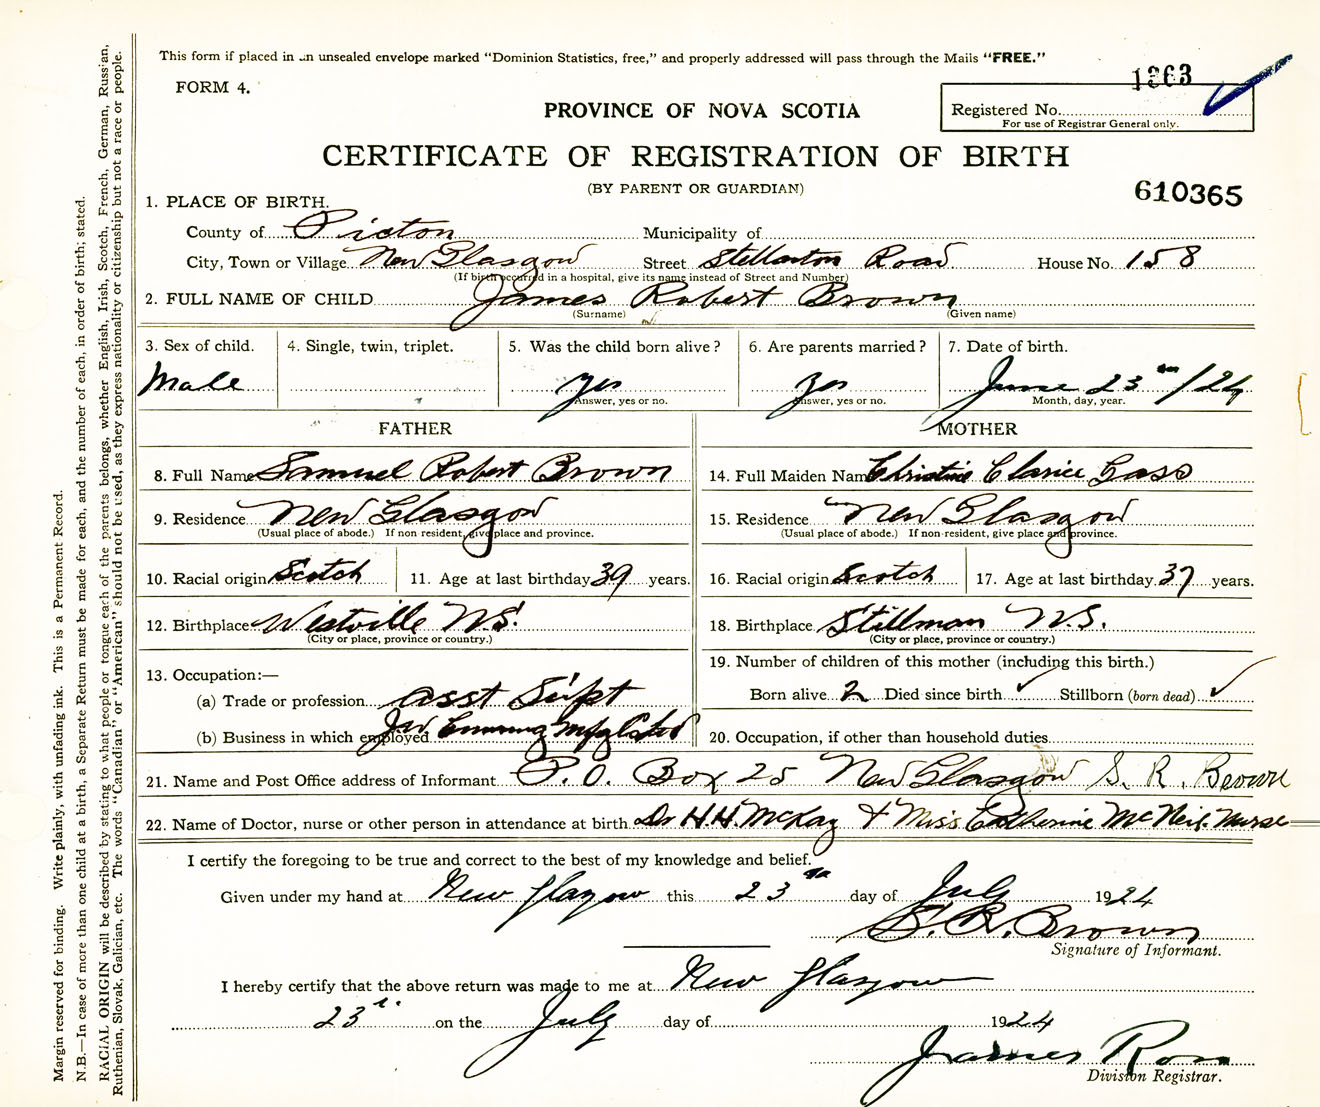 This form if placed in an unsealed envelope marked “Dominion Statistics, free,” and properly addressed will pass through the Mails “FREE.”
FORM 4.
1363
PROVINCE OF NOVA SCOTIA
Registered No.
For use of Registrar General only.
CERTIFICATE OF REGISTRATION OF BIRTH
(BY PARENT OR GUARDIAN)
610365
1. PLACE OF BIRTH.
County of Pictou Municipality of
City, Town or Village New Glasgow Street Stellarton Road House No. 158
(If birth occurred in a hospital, give its name instead of Street and Number)
2. FULL NAME OF CHILD James Robert Brown
(Surname) (Given name)
3. Sex of child. 4. Single, twin, triplet. 5. Was the child born alive? 6. Are parents married? 7. Date of birth.
Male yes yes June 23rd /24
Answer, yes or no. Answer, yes or no. Month, day, year.
FATHER MOTHER
8. Full Name Samuel Robert Brown 14. Full Maiden Name Christine Clarice Gass
9. Residence New Glasgow 15. Residence New Glasgow
(Usual place of abode.) If non resident, give place and province. (Usual place of abode.) If non-resident, give place and province.
10. Racial origin Scotch 11. Age at last birthday 39 years. 16. Racial origin Scotch 17. Age at last birthday 37 years.
12. Birthplace Westville N.S. 18. Birthplace Stillman N.S.
(City or place, province or country.) (City or place, province or country.)
19. Number of children of this mother (including this birth.)
13. Occupation:—
(a) Trade or profession asst Supt Born alive 2 Died since birth ✓ Stillborn (born dead) ✓
(b) Business in which employed 20. Occupation, if other than household duties
21. Name and Post Office address of Informant P.O. Box 25 New Glasgow S. R. Brown
22. Name of Doctor, nurse or other person in attendance at birth Dr H.H. McKay & Miss Catherine McNeil nurse
I certify the foregoing to be true and correct to the best of my knowledge and belief.
Given under my hand at New Glasgow this 23 day of July 1924
S. R. Brown
Signature of Informant.
I hereby certify that the above return was made to me at New Glasgow
23 on the July day of 1924
James Ross
Division Registrar.
Margin reserved for binding. Write plainly, with unfading ink. This is a Permanent Record.
N.B.—In case of more than one child at a birth, a Separate Return must be made for each, and the number of each, in order of birth; stated.
RACIAL ORIGIN will be described by stating to what people or tongue each of the parents belongs, whether English, Irish, Scotch, French, German, Russian,
Ruthenian, Slovak, Galician, etc. The words “Canadian” or “American” should not be used, as they express nationality or citizenship but not a race or people.